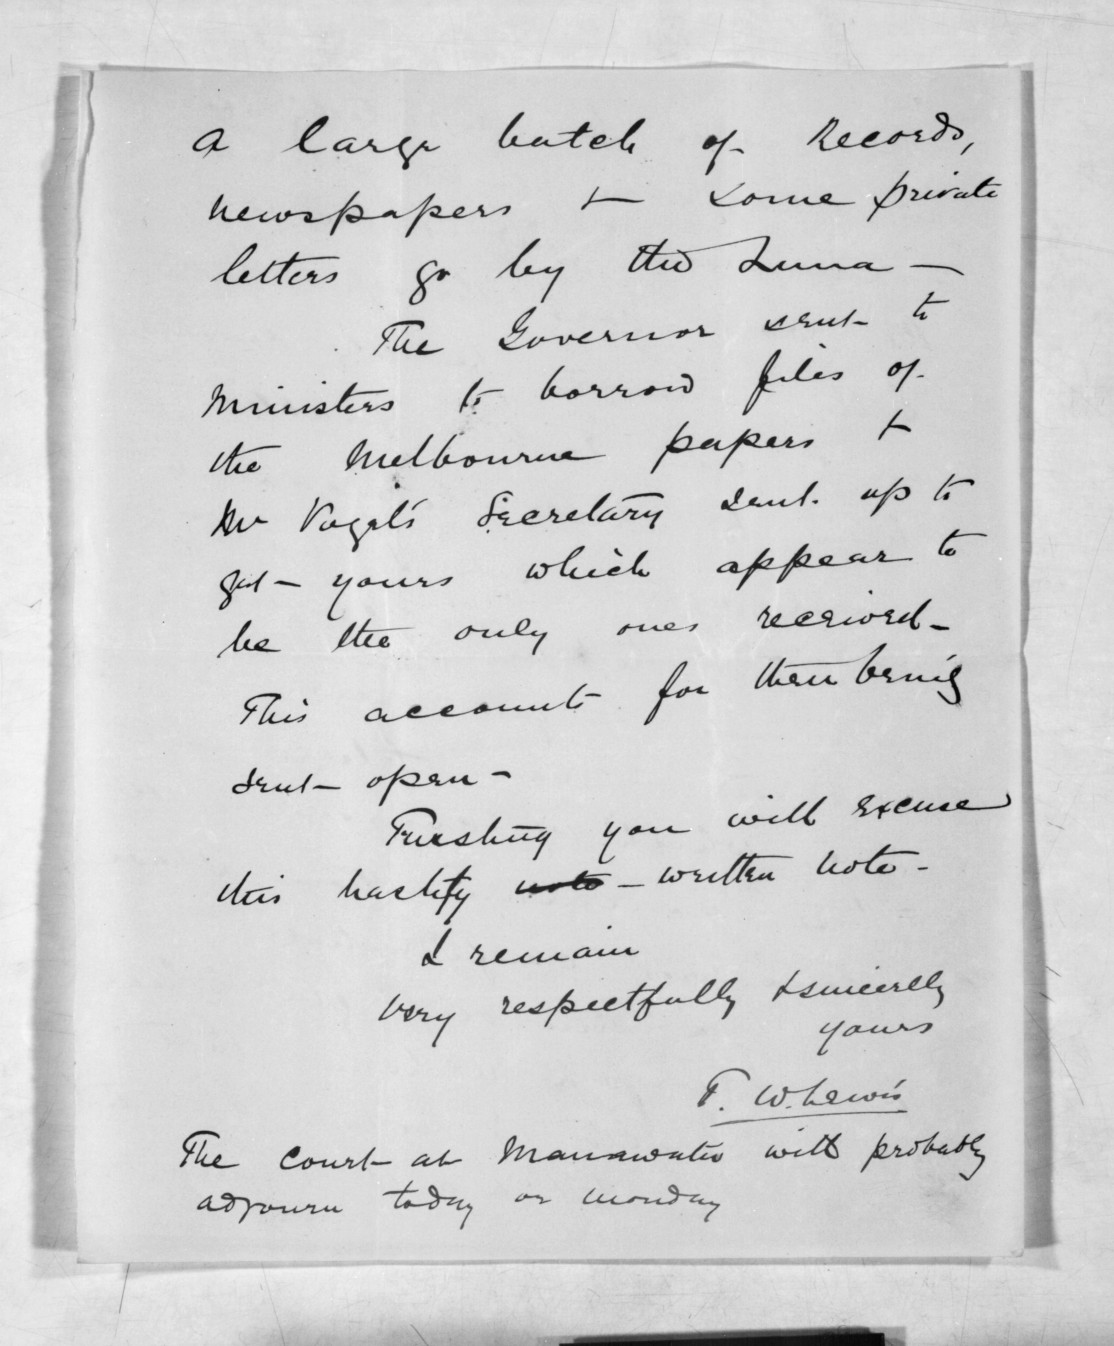 a large batch of Records,
newspapers & some private
letters go by the Luna —
The Governor sent to
Ministers to borrow files of
the Melbourne papers &
Mr Vogel's Secretary sent up to
get — yours which appear to
be the only ones received —
This accounts for them being
sent — open —
Trusting you will excuse
this hastily note — written note —
I remain
very respectfully & sincerely
yours
T. W. Lewis
The Court at Manawatu will probably
adjourn today or monday